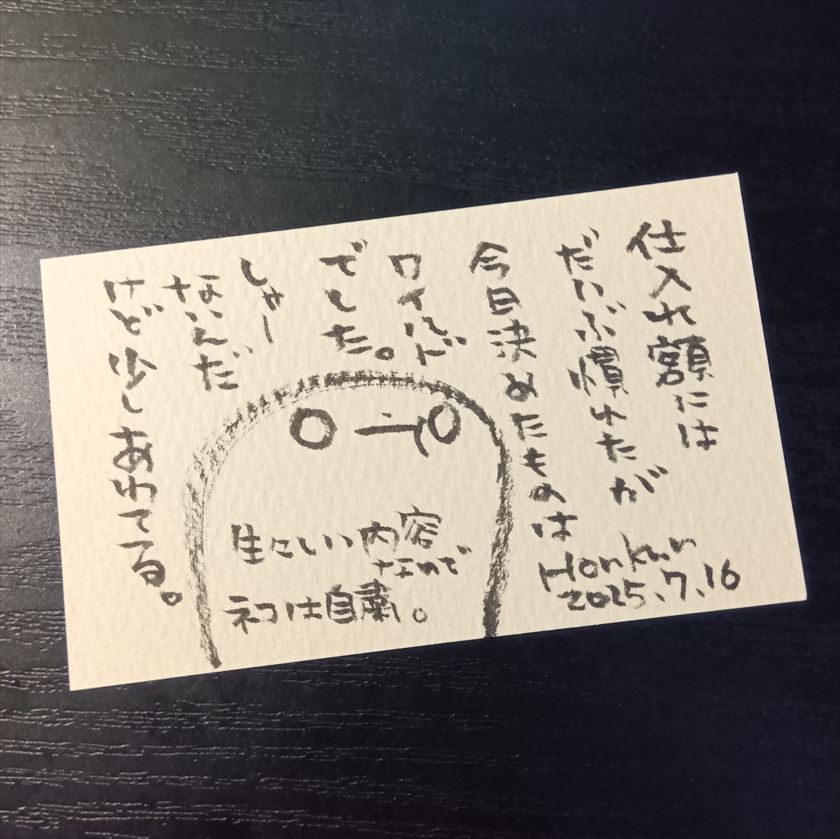 仕入れ額には
だいぶ慣れたが
今日決めたものは
ワイルド
でした。
しゃー
ないんだ
けど少しあわてる。
生々しい内容
なので
ネコは自粛。
Honkun
2025.7.16